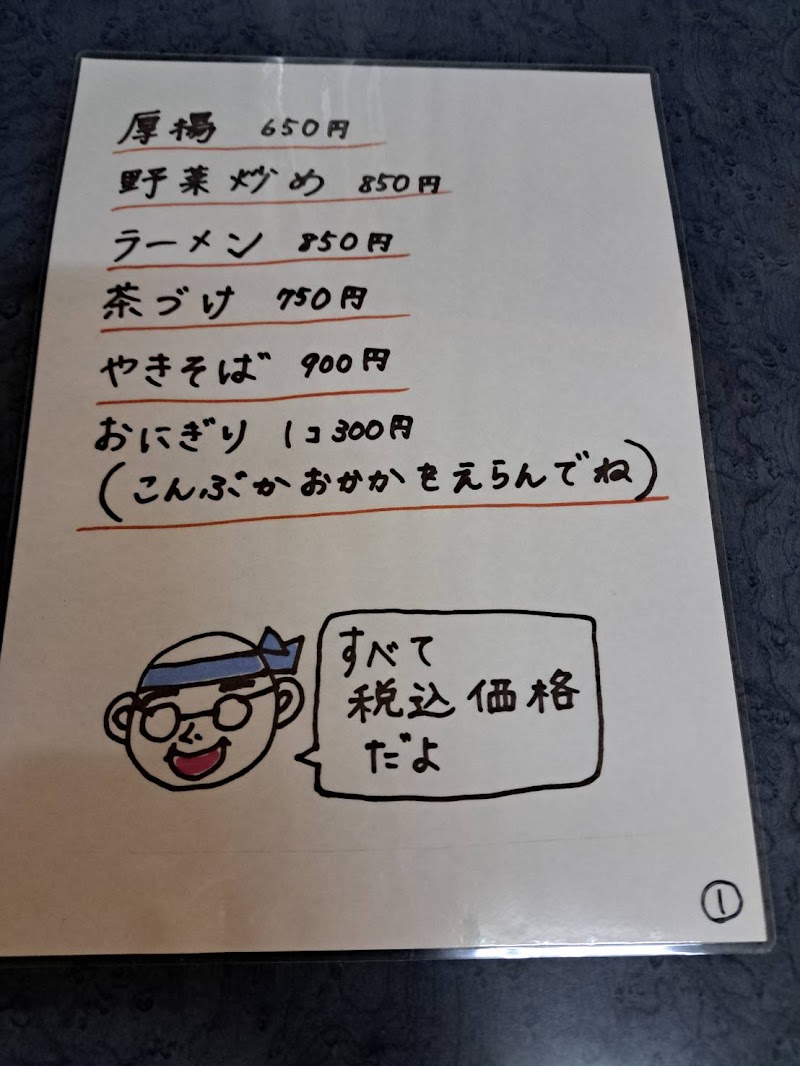 厚揚 650円
野菜炒め 850円
ラーメン 850円
茶づけ 750円
やきそば 900円
おにぎり 1コ300円
(こんぶかおかかをえらんでね)
すべて
税込価格
だよ
①